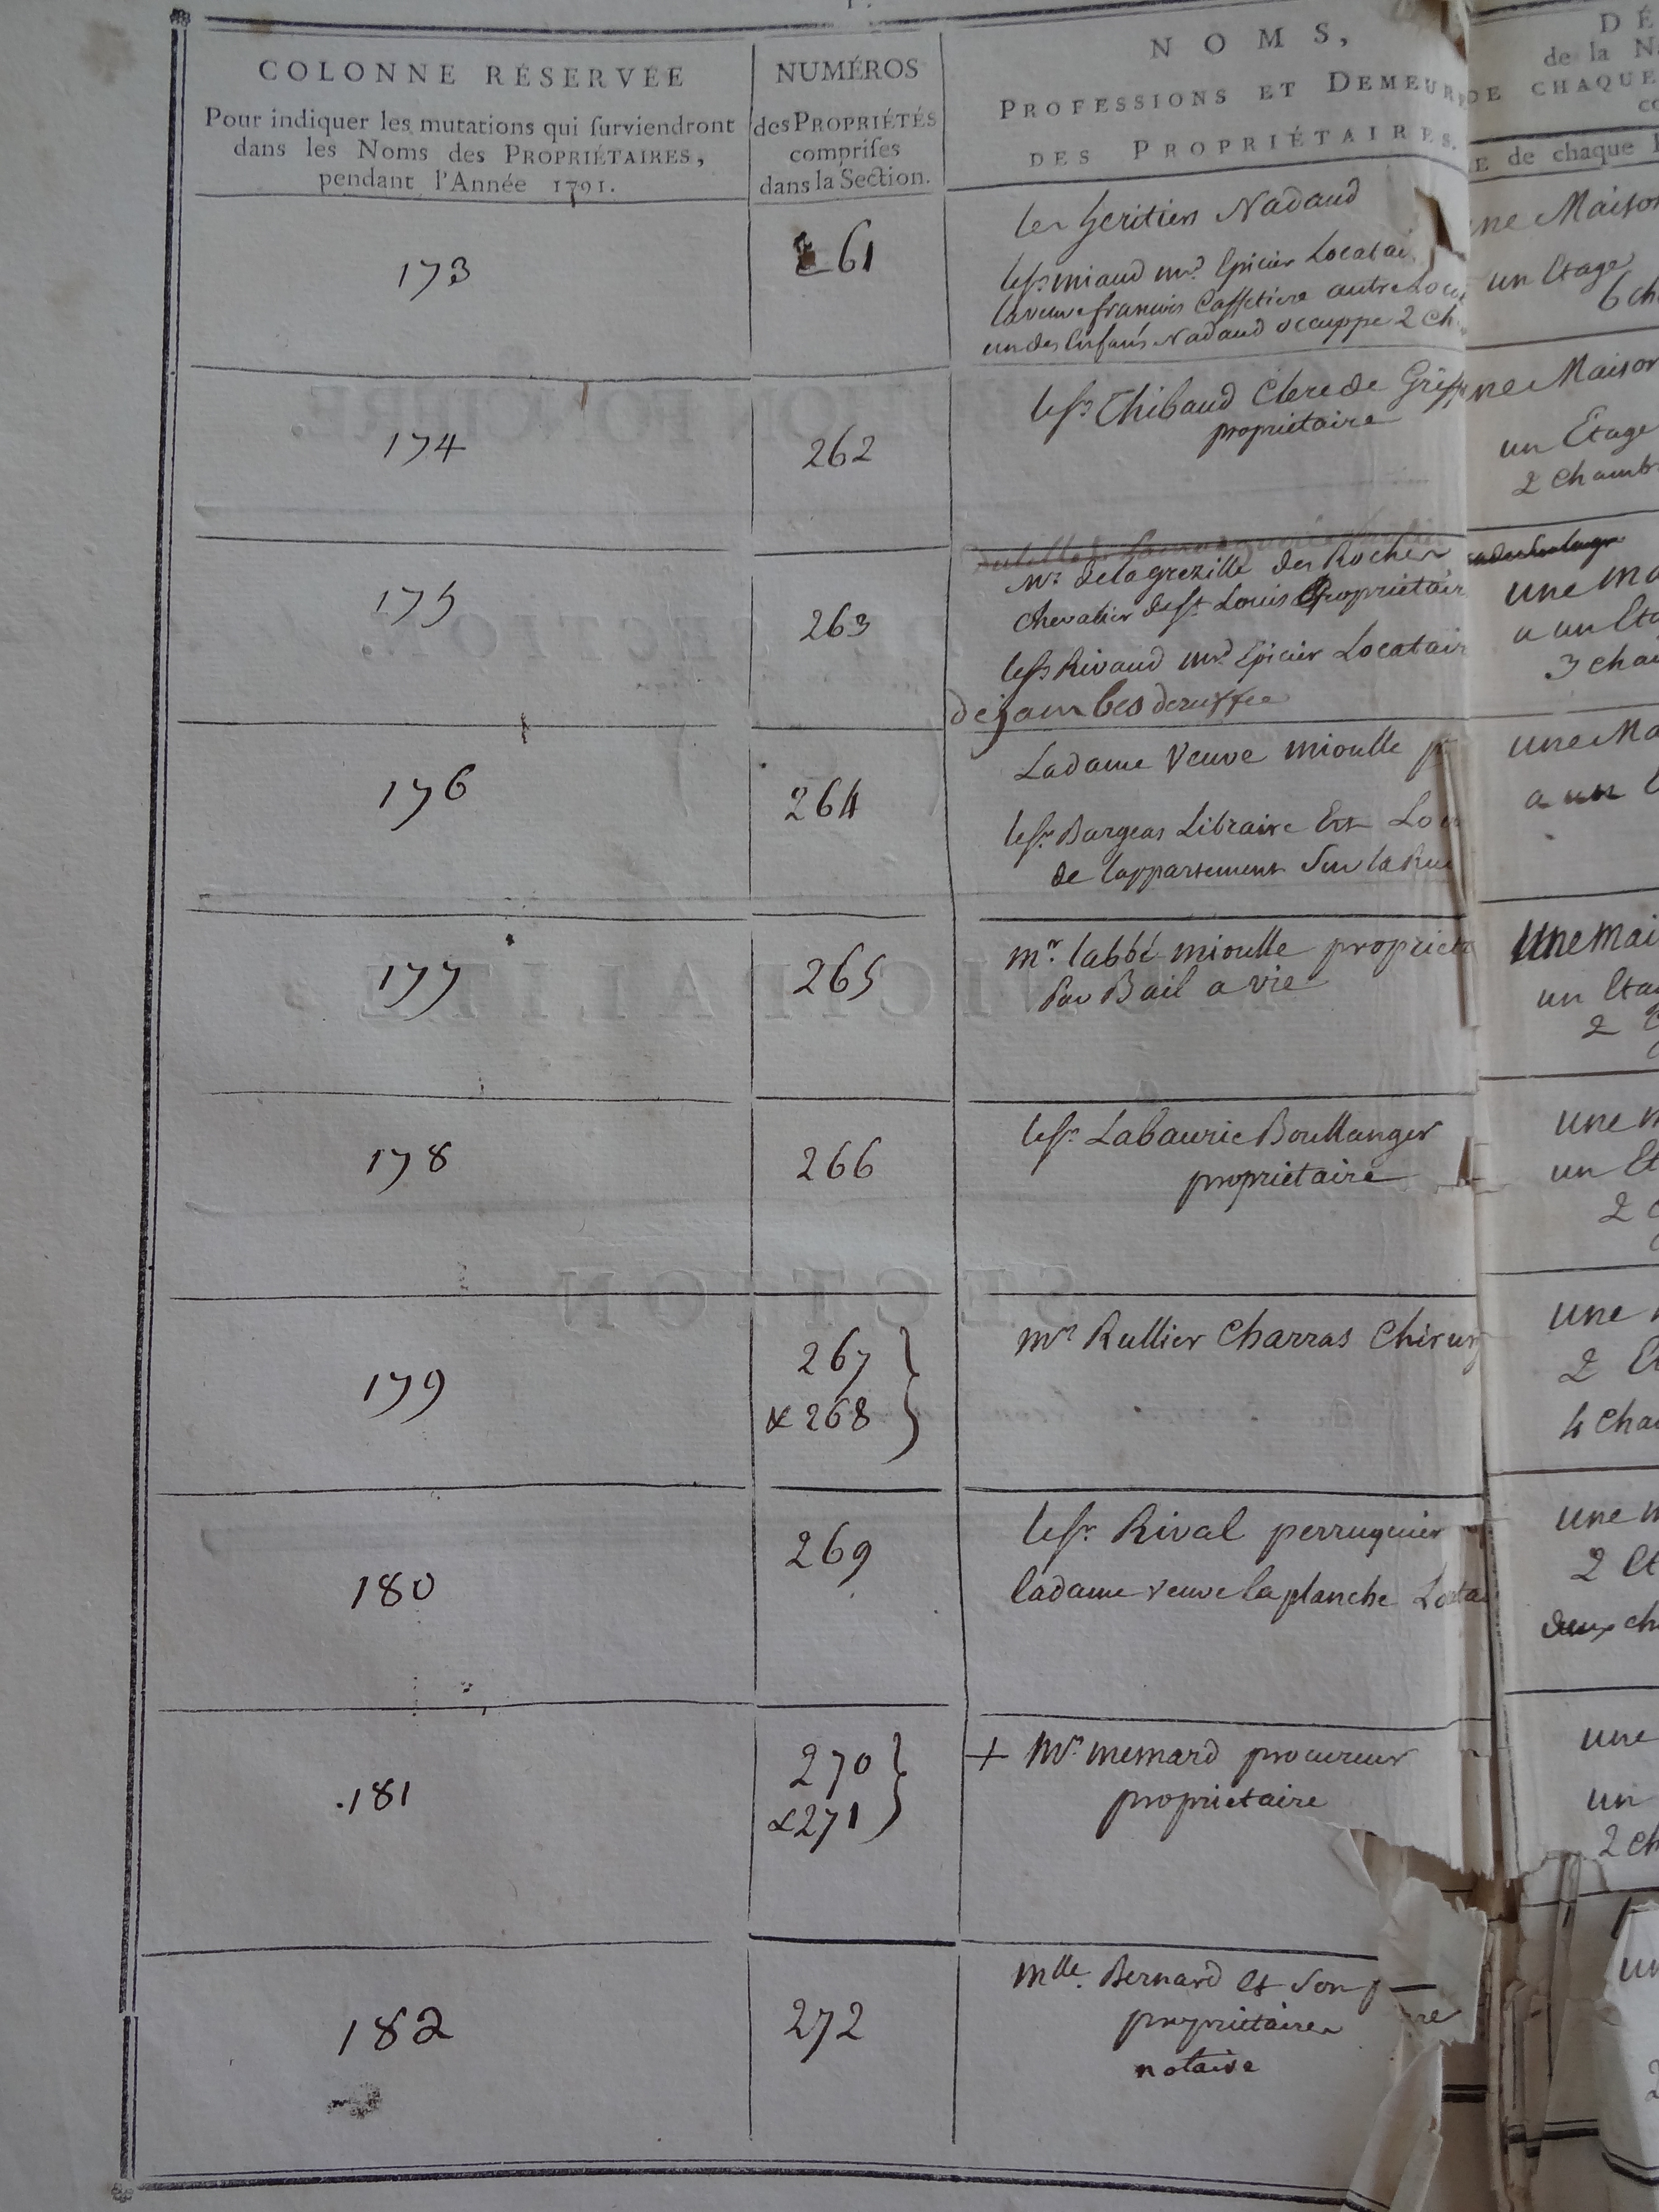 COLONNE RÉSERVÉE
Pour indiquer les mutations qui surviendront
dans les Noms des PROPRIÉTAIRES,
pendant l'Année 1791.
NUMÉROS
des PROPRIÉTÉS
comprises
dans la Section.
NOMS,
PROFESSIONS ET DEMEUR
DES PROPRIÉTAIRES.
DÉ
de la N
DE CHAQUE
co
E de chaque
173
261
les heritiers Nadaud
le sr miaud md Epicier Locatai
la veuve francois Caffetiere autre Loca
un des Enfans Nadaud occuppe 2 ch
une Maison
un Etage
6 ch
174
262
le sr Thibaud Clerc de Greffe
proprietaire
une Maison
un Etage
2 Chamb
175
263
Mr. delagrezille des Rocher
Chevalier de st. Louis Proprietair
le sr Rivaud md Epicier Locatair
dejambes deruffec
une ma
a un Eta
3 cha
176
264
La dame Veuve mioulle p
le sr. Bargeas Libraire Est Loca
de lappartement Sur la Rue
une Ma
a un E
177
265
mr. labbé mioulle proprieta
Par Bail a vie
une mai
un Eta
2
178
266
le sr. Labaurie Boullanger
proprietaire
une m
un Et
2 C
179
267
& 268
Mr Rullier Charras Chirur
une
2 Et
4 Cha
180
269
le sr. Rival perruquier
la dame veuve la planche Locata
une m
2 Et
deux ch
.181
270
& 271
+ Mr. memard procureur
proprietaire
une
un
2 ch
182
272
Mlle. Bernard et Son
proprietaires
notaire
un